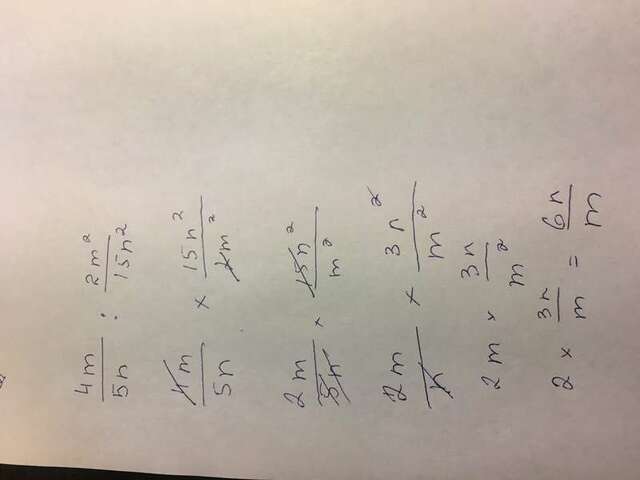 4m/5n : 2m²/15n²
4m/5n × 15n²/2m²
2m/5n × 15n²/m²
2m/n × 3n²/m²
2m × 3n/m²
2 × 3n/m = 6n/m